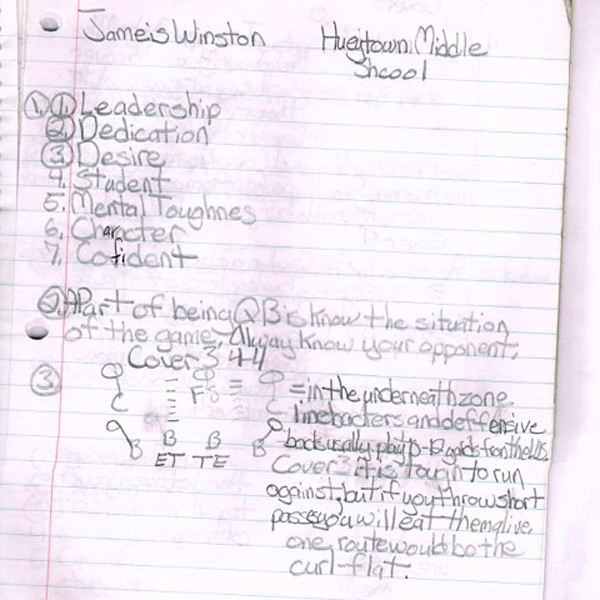 Jameis Winston Hueytown Middle
Shcool
1. 1. Leadership
2. Dedication
3. Desire
4. Student
5. Mental Toughnes
6. Character
7. Cofident
2. A Part of being QB is know the situation
of the game, Alway know your opponent.
Cover 3 4-4
3. FS = in the underneath zone
C C linebackers and deffensive
B B B B back usally play
ET TE Cover 3 it is to run
against, but if you throw short
passes you will eat them alive.
one route would be the
curl-flat.